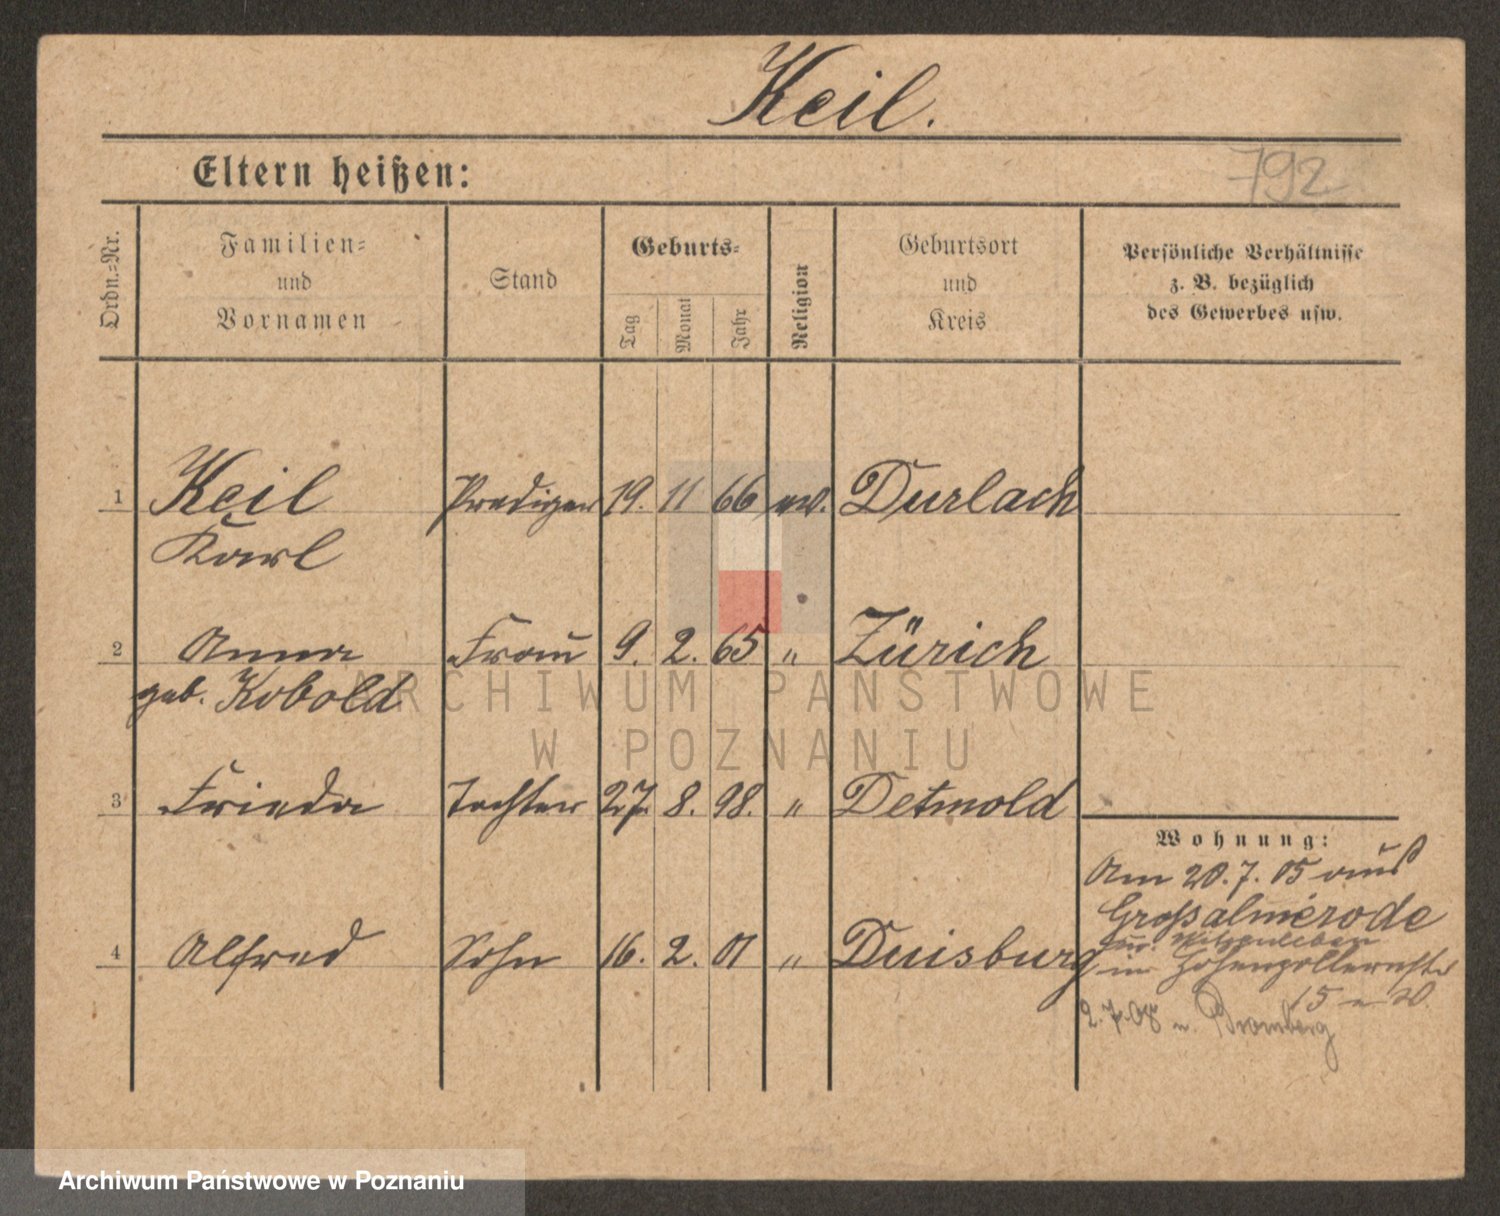 Keil.
Eltern heißen:
792
Ordn.=Nr.
Familien=
und
Vornamen
Stand
Geburts=
Tag
Monat
Jahr
Religion
Geburtsort
und
Kreis
Persönliche Verhältnisse
z. B. bezüglich
des Gewerbes usw.
1 Keil Prediger 19. 11 66 ev. Durlach
Karl
2 Anna Frau 9. 2. 65 " Zürich
geb. Kobold
3 Frieda Tochter 27. 8. 98. " Detmold
Wohnung:
Am 20. 7. 05 aus
Großalmerode
4 Alfred Sohn 16. 2. 01 " Duisburg
in Hohenzollernstr
15
2.7.08 n. Bromberg
ARCHIWUM PAŃSTWOWE
W POZNANIU
Archiwum Państwowe w Poznaniu